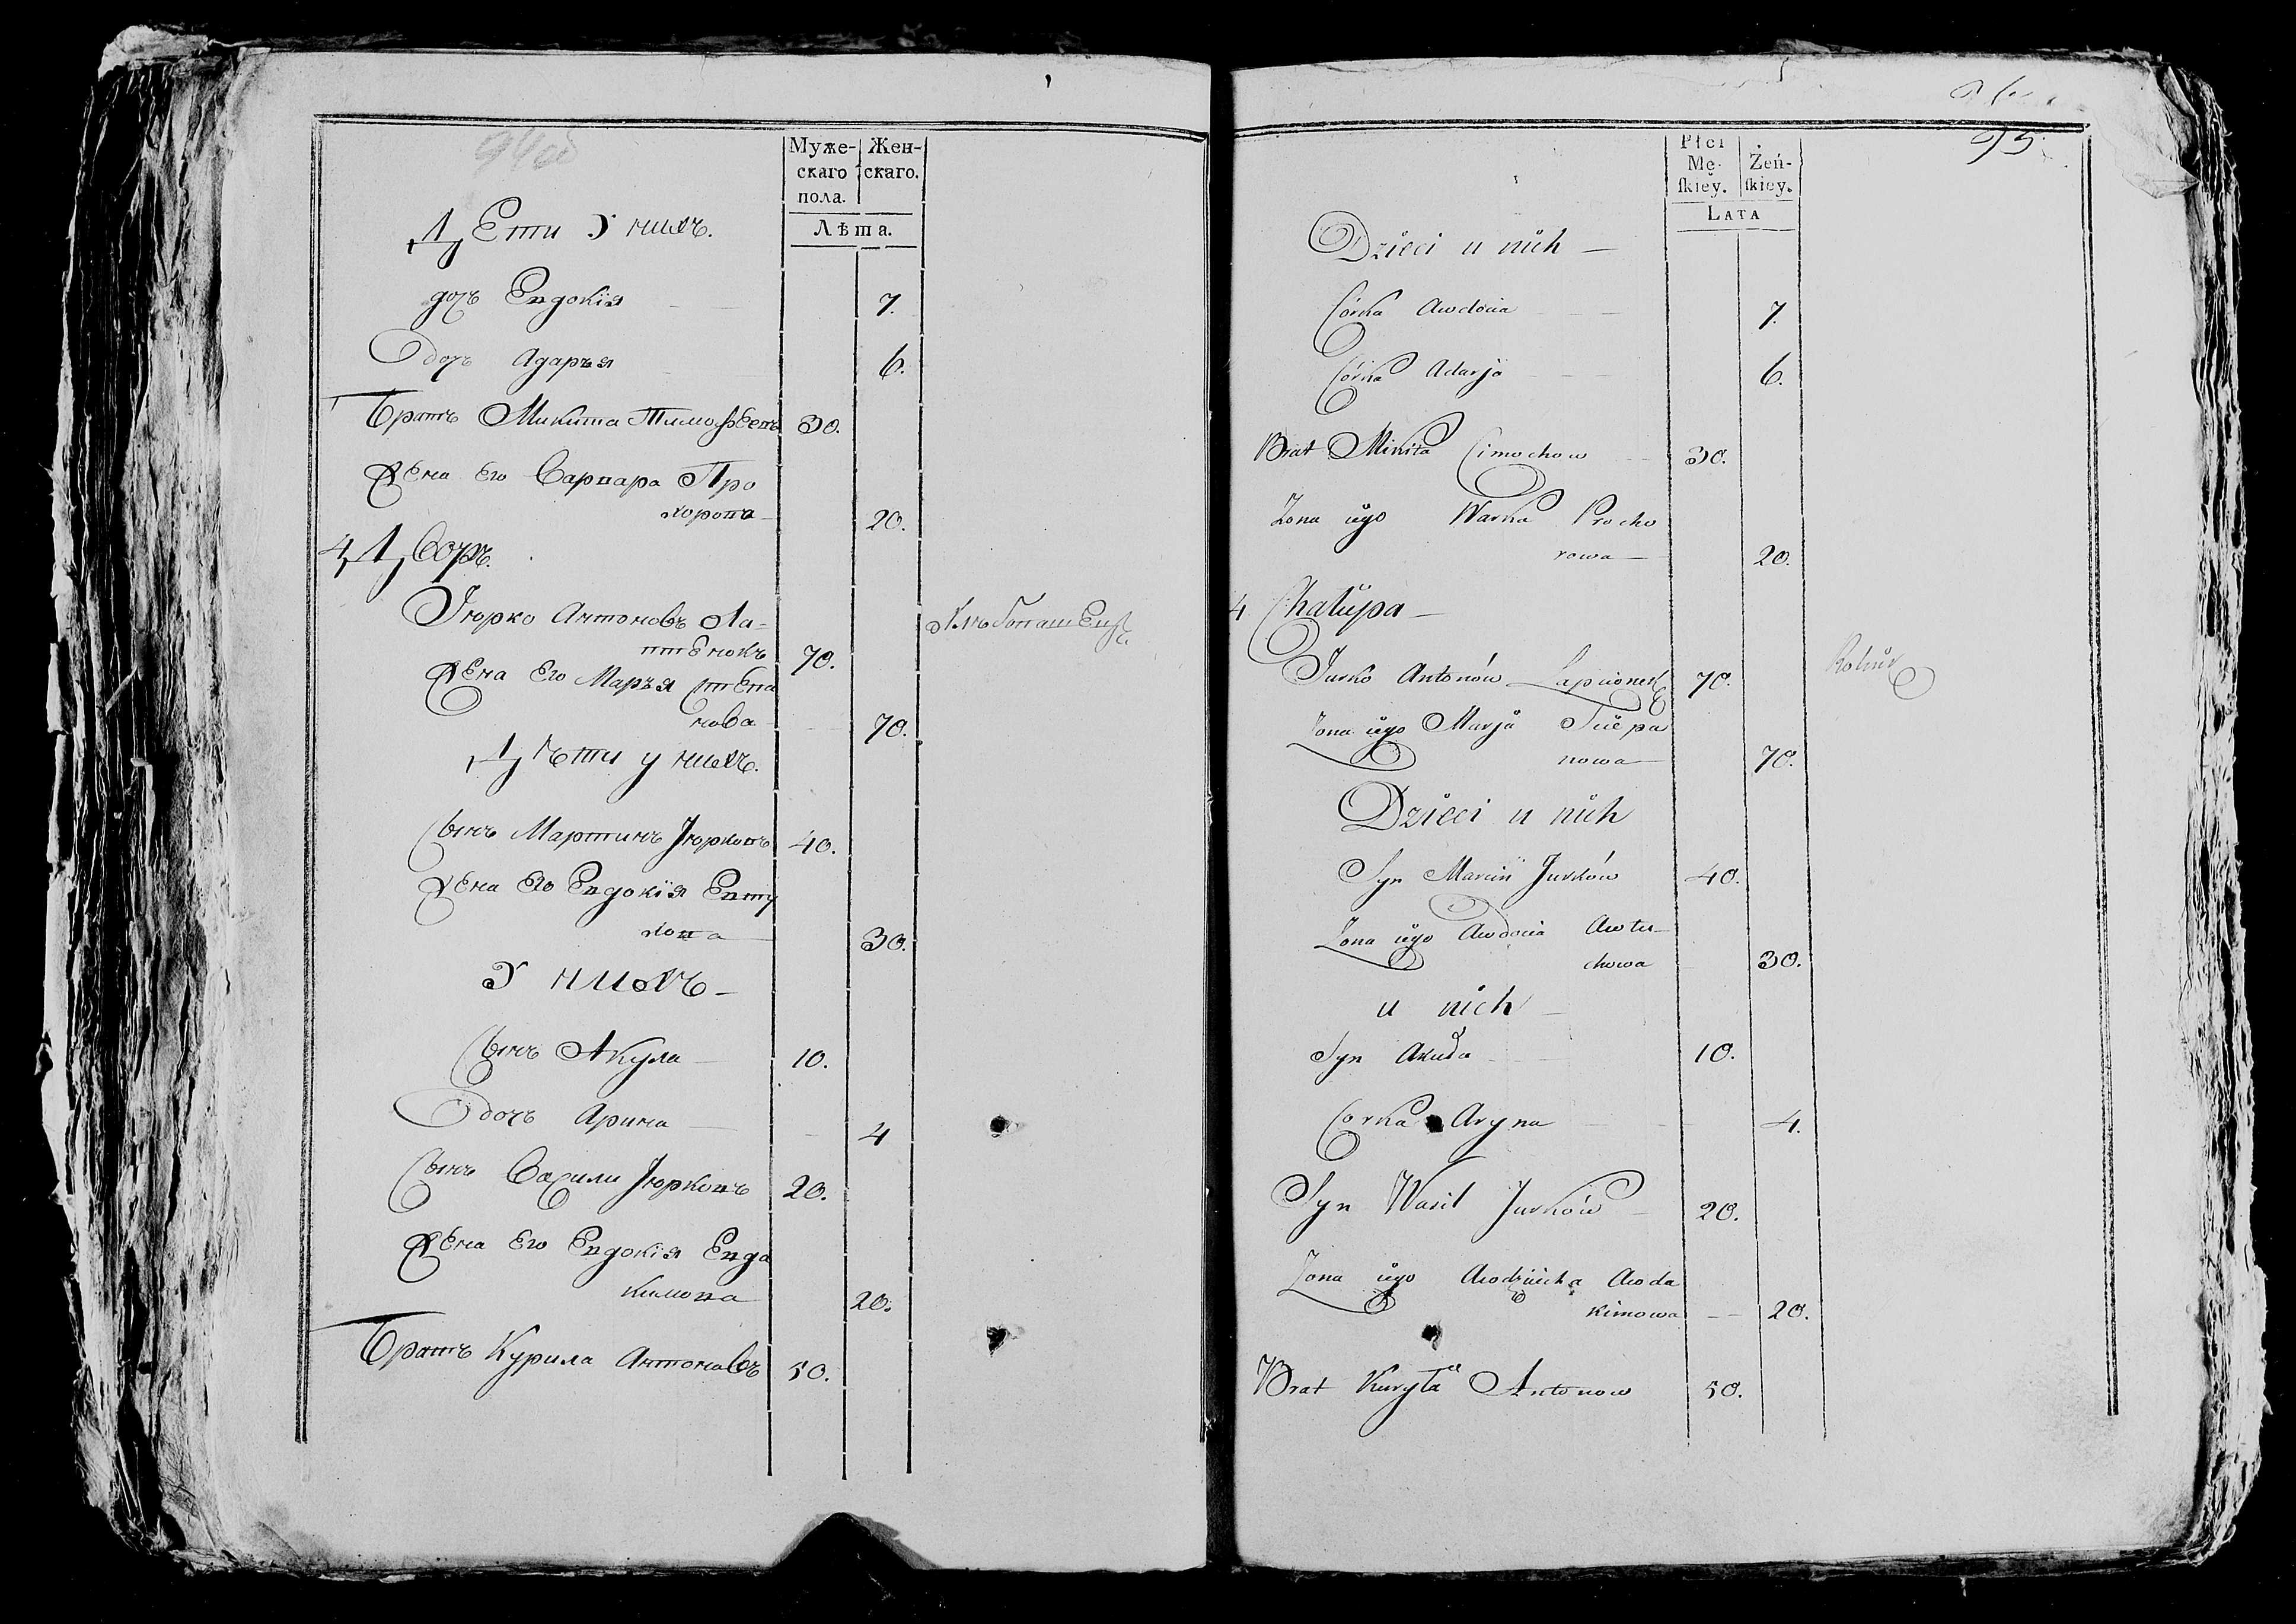 Муже-
скаго
пола.
Жен-
скаго.
Лѣта.
Дети У нихъ.
дочъ Евдокія 7.
дочъ Адаръя 6.
Братъ Микита Тимофѣевъ 30.
Жена Его Варвара Про
хорова 20.
4 Дворъ.
Июрко Антоновъ Ла-
птенокъ 70.
Хлѣбопашецъ
Жена Его Маръя Степа
нова 70.
Дѣти у нихъ.
Сынъ Мартинъ Июрковъ 40.
Жена Его Евдокія Евту
хова 30.
У нихъ
Сынъ Акула 10.
дочъ Арина 4
Сынъ Васили Июрковъ 20.
Жена Его Евдокія Евда
кимова 20.
Братъ Курила Антоновъ 50.
95.
Płci
Mę-
ſkiey.
Żeń-
ſkiey.
LATA
Dzieci u nich
Córka Awdocia 7.
Córka Adarja 6.
Brat Mikita Cimochow 30.
Zona iego Warka Procho
rowa 20.
4 Chałupa
Jurko Antonów Łapcionek 70.
Rolnik
Zona iego Marja Sciepa
nowa 70.
Dzieci u nich
Syn Marcin Jurków 40.
Zona iego Awdocia Awtu-
chowa 30.
u nich
Syn Akuła 10.
Corka Aryna 4.
Syn Wasil Jurków 20.
Zona iego Awdziucha Awda
kimowa 20.
Brat Kuryła Antonow 50.